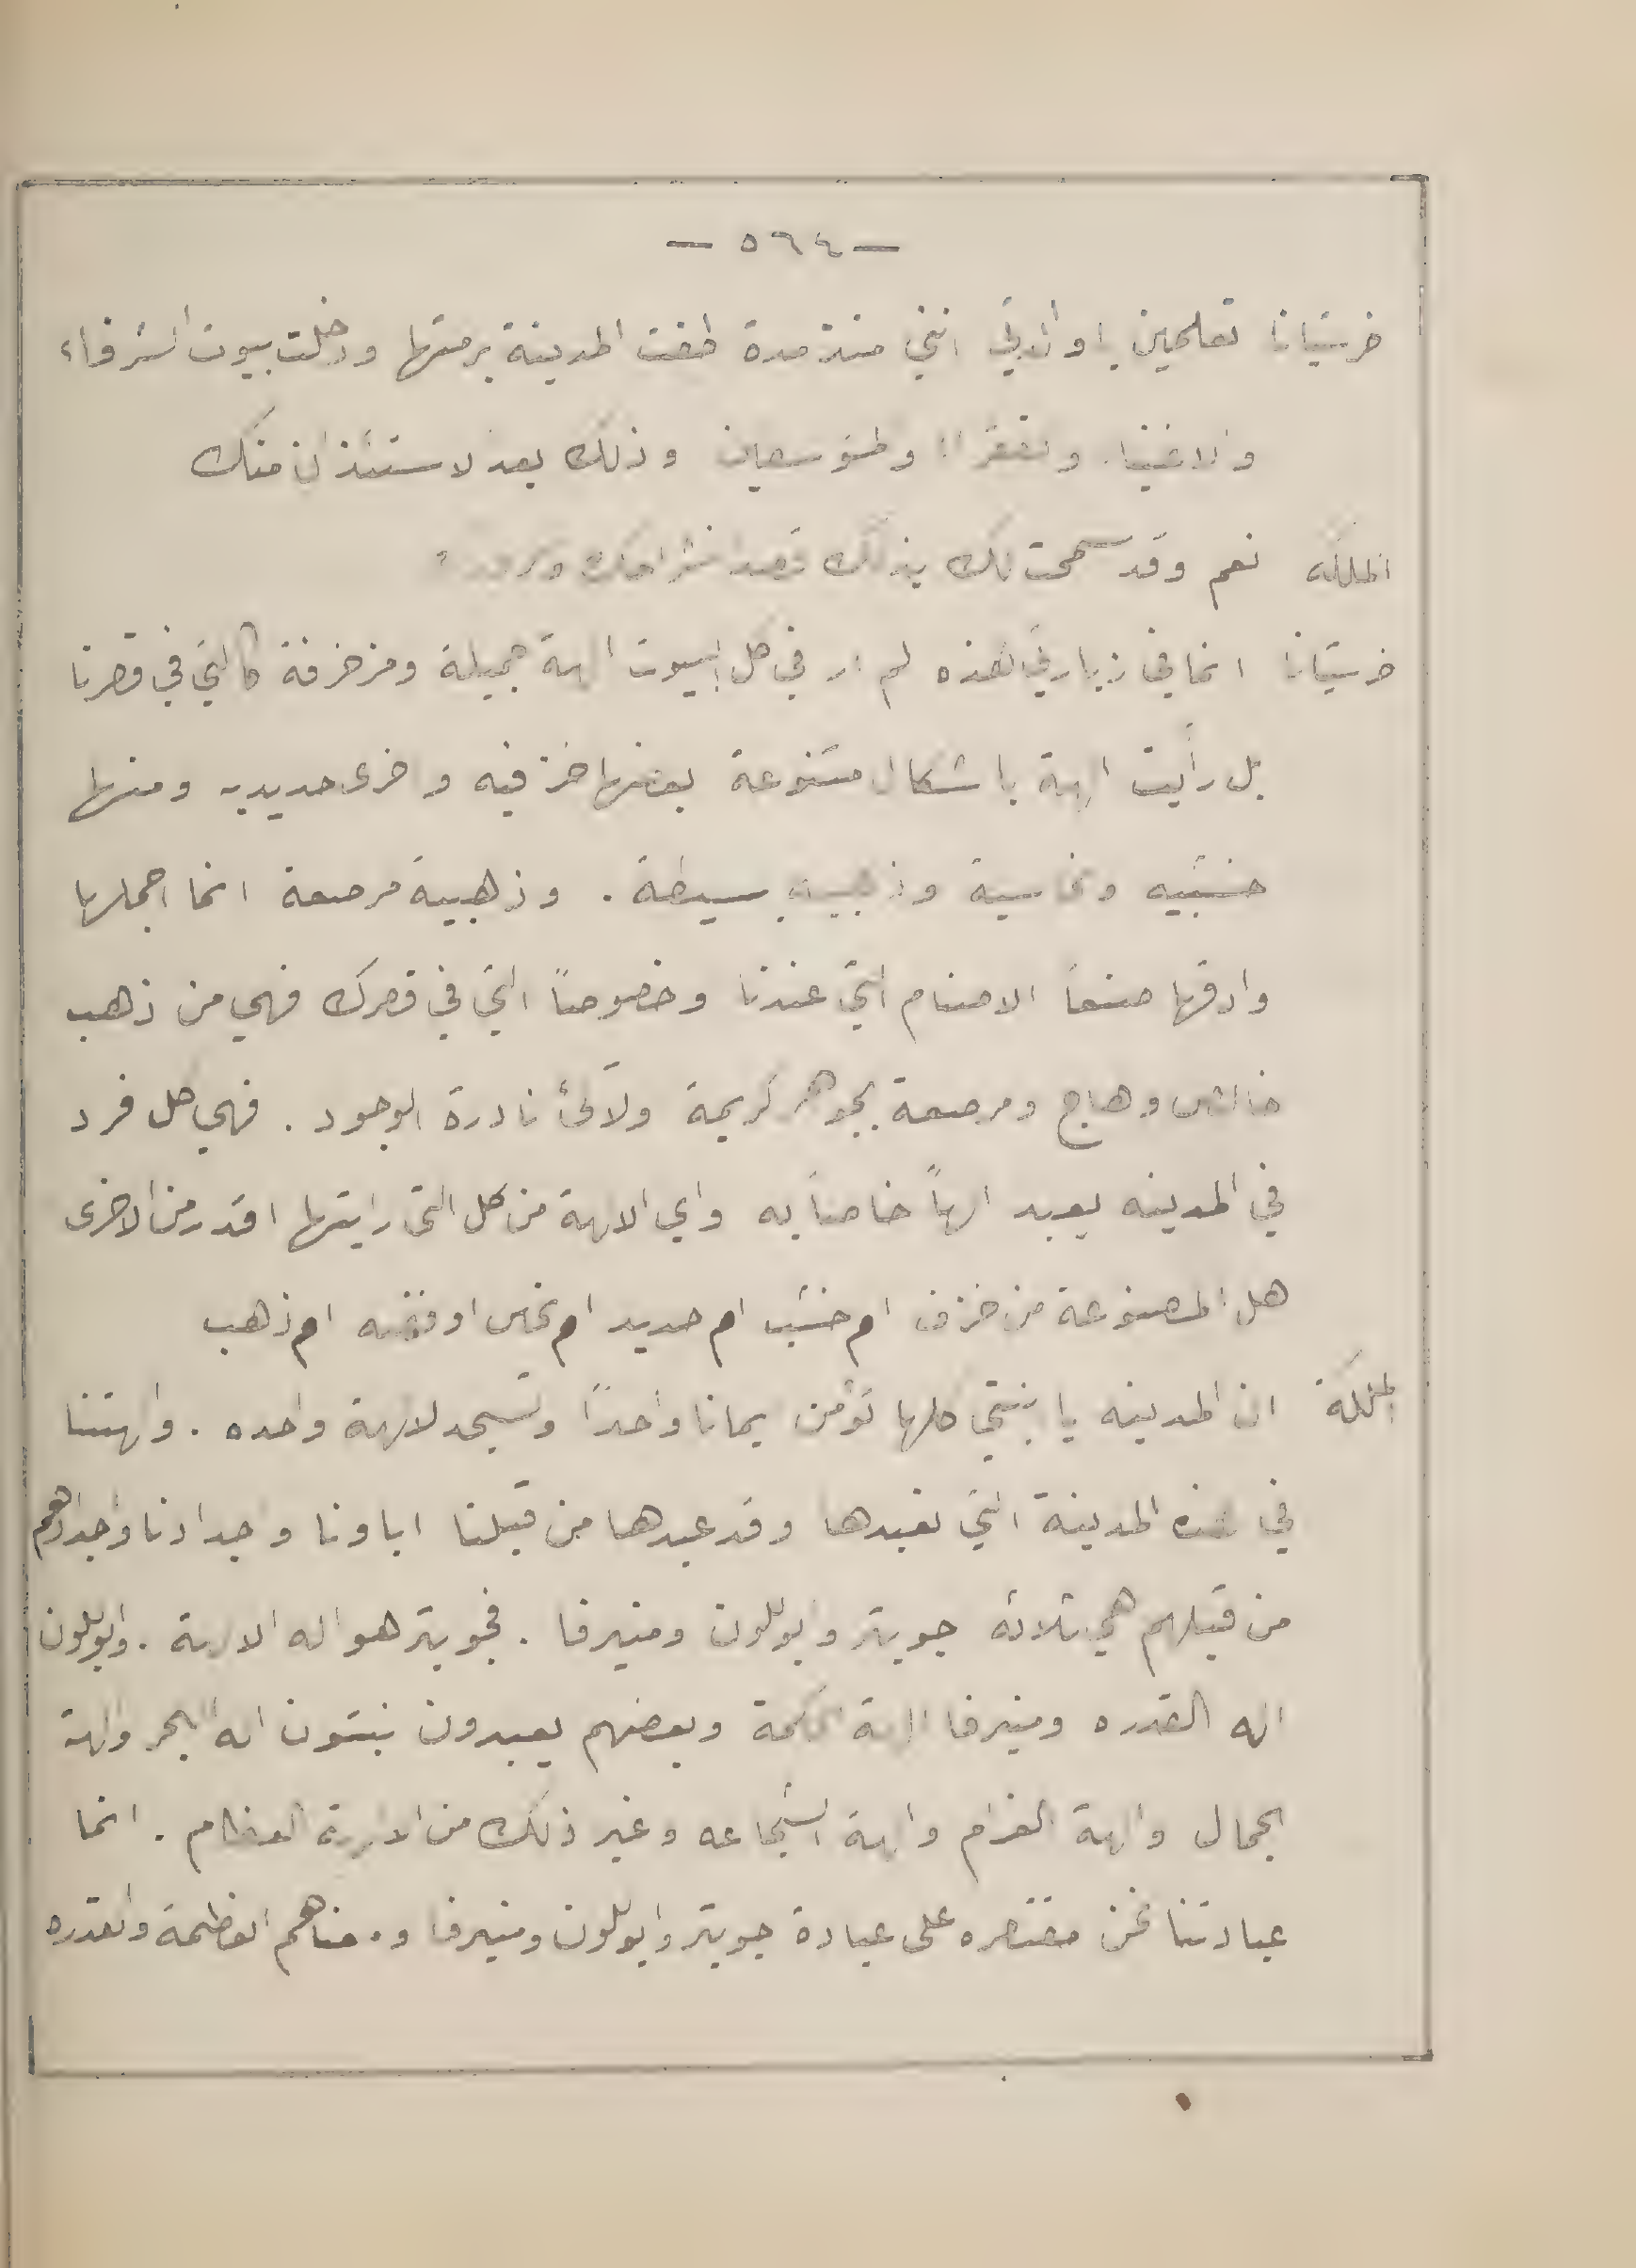 — ٥٦٤ —
خرستيانا تعلمين يا والدتي انني منذ مدة طفت المدينة برمتها ودخلت بيوت الشرفاء
والاغنياء والفقراا وذلك بعد لاستئذان منك
الملكه نعم وقد سمحت لك بذلك قصد
خرستيانا انما في زيارتي هذه لم ار في كل البيوت الهة جميلة ومزخرفة كالتي في قصرنا
بل رأيت الهة باشكال متنوعة بعضها خزفيه واخرى حديديه ومنها
خشبيه ونحاسية وذهبية بسيطة . وذهبية مرصعة انما اجملها
وادقها صنعاً الاصنام التي عندنا وخصوصاً التي في قصرك فهي من ذهب
خالص وهاج ومرصعة بجوهر كريمة ولآلئ نادرة الوجود . فهي كل فرد
في المدينه يعبد الهاً خاصاً به واي الالهة من كل التي رايتها اقدر من الاخرى
هل المصنوعة من خزف ام خشب ام حديد ام نحاس او فضه ام ذهب
الملكة ان المدينه يا بنتي كلها تؤمن يمانا واحداً وتسجد لالهة واحده . والهتنا
في هذه المدينة التي نعبدها وقد عبدها من قبلنا اباونا وجدادنا واجدادهم
من قبلهم هي ثلاثه جوبتر وابوللون ومنيرفا . فجوبتر هو اله الالهة . وابوللون
اله القدره ومنيرفا الهة الحكمة وبعضهم يعبدون نبتون اله البحر والهة
الجمال والهة الغرام والهة الشجاعه وغير ذلك من الالهة العظام . انما
عبادتنا نحن مقتصره على عبادة جوبتر وابوللون ومنيرفا العظمة والقدره